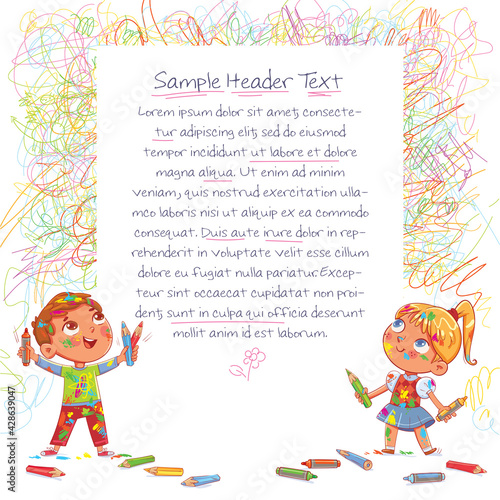 Sample Header Text
Lorem ipsum dolor sit amet, consecte-
tur adipiscing elit, sed do eiusmod
tempor incididunt ut labore et dolore
magna aliqua. Ut enim ad minim
veniam, quis nostrud exercitation ulla-
mco laboris nisi ut aliquip ex ea commodo
consequat. Duis aute irure dolor in rep-
rehenderit in voluptate velit esse cillum
dolore eu fugiat nulla pariatur. Excep-
teur sint occaecat cupidatat non proi-
dent, sunt in culpa qui officia deserunt
mollit anim id est laborum.
Adobe Stock | #428639047